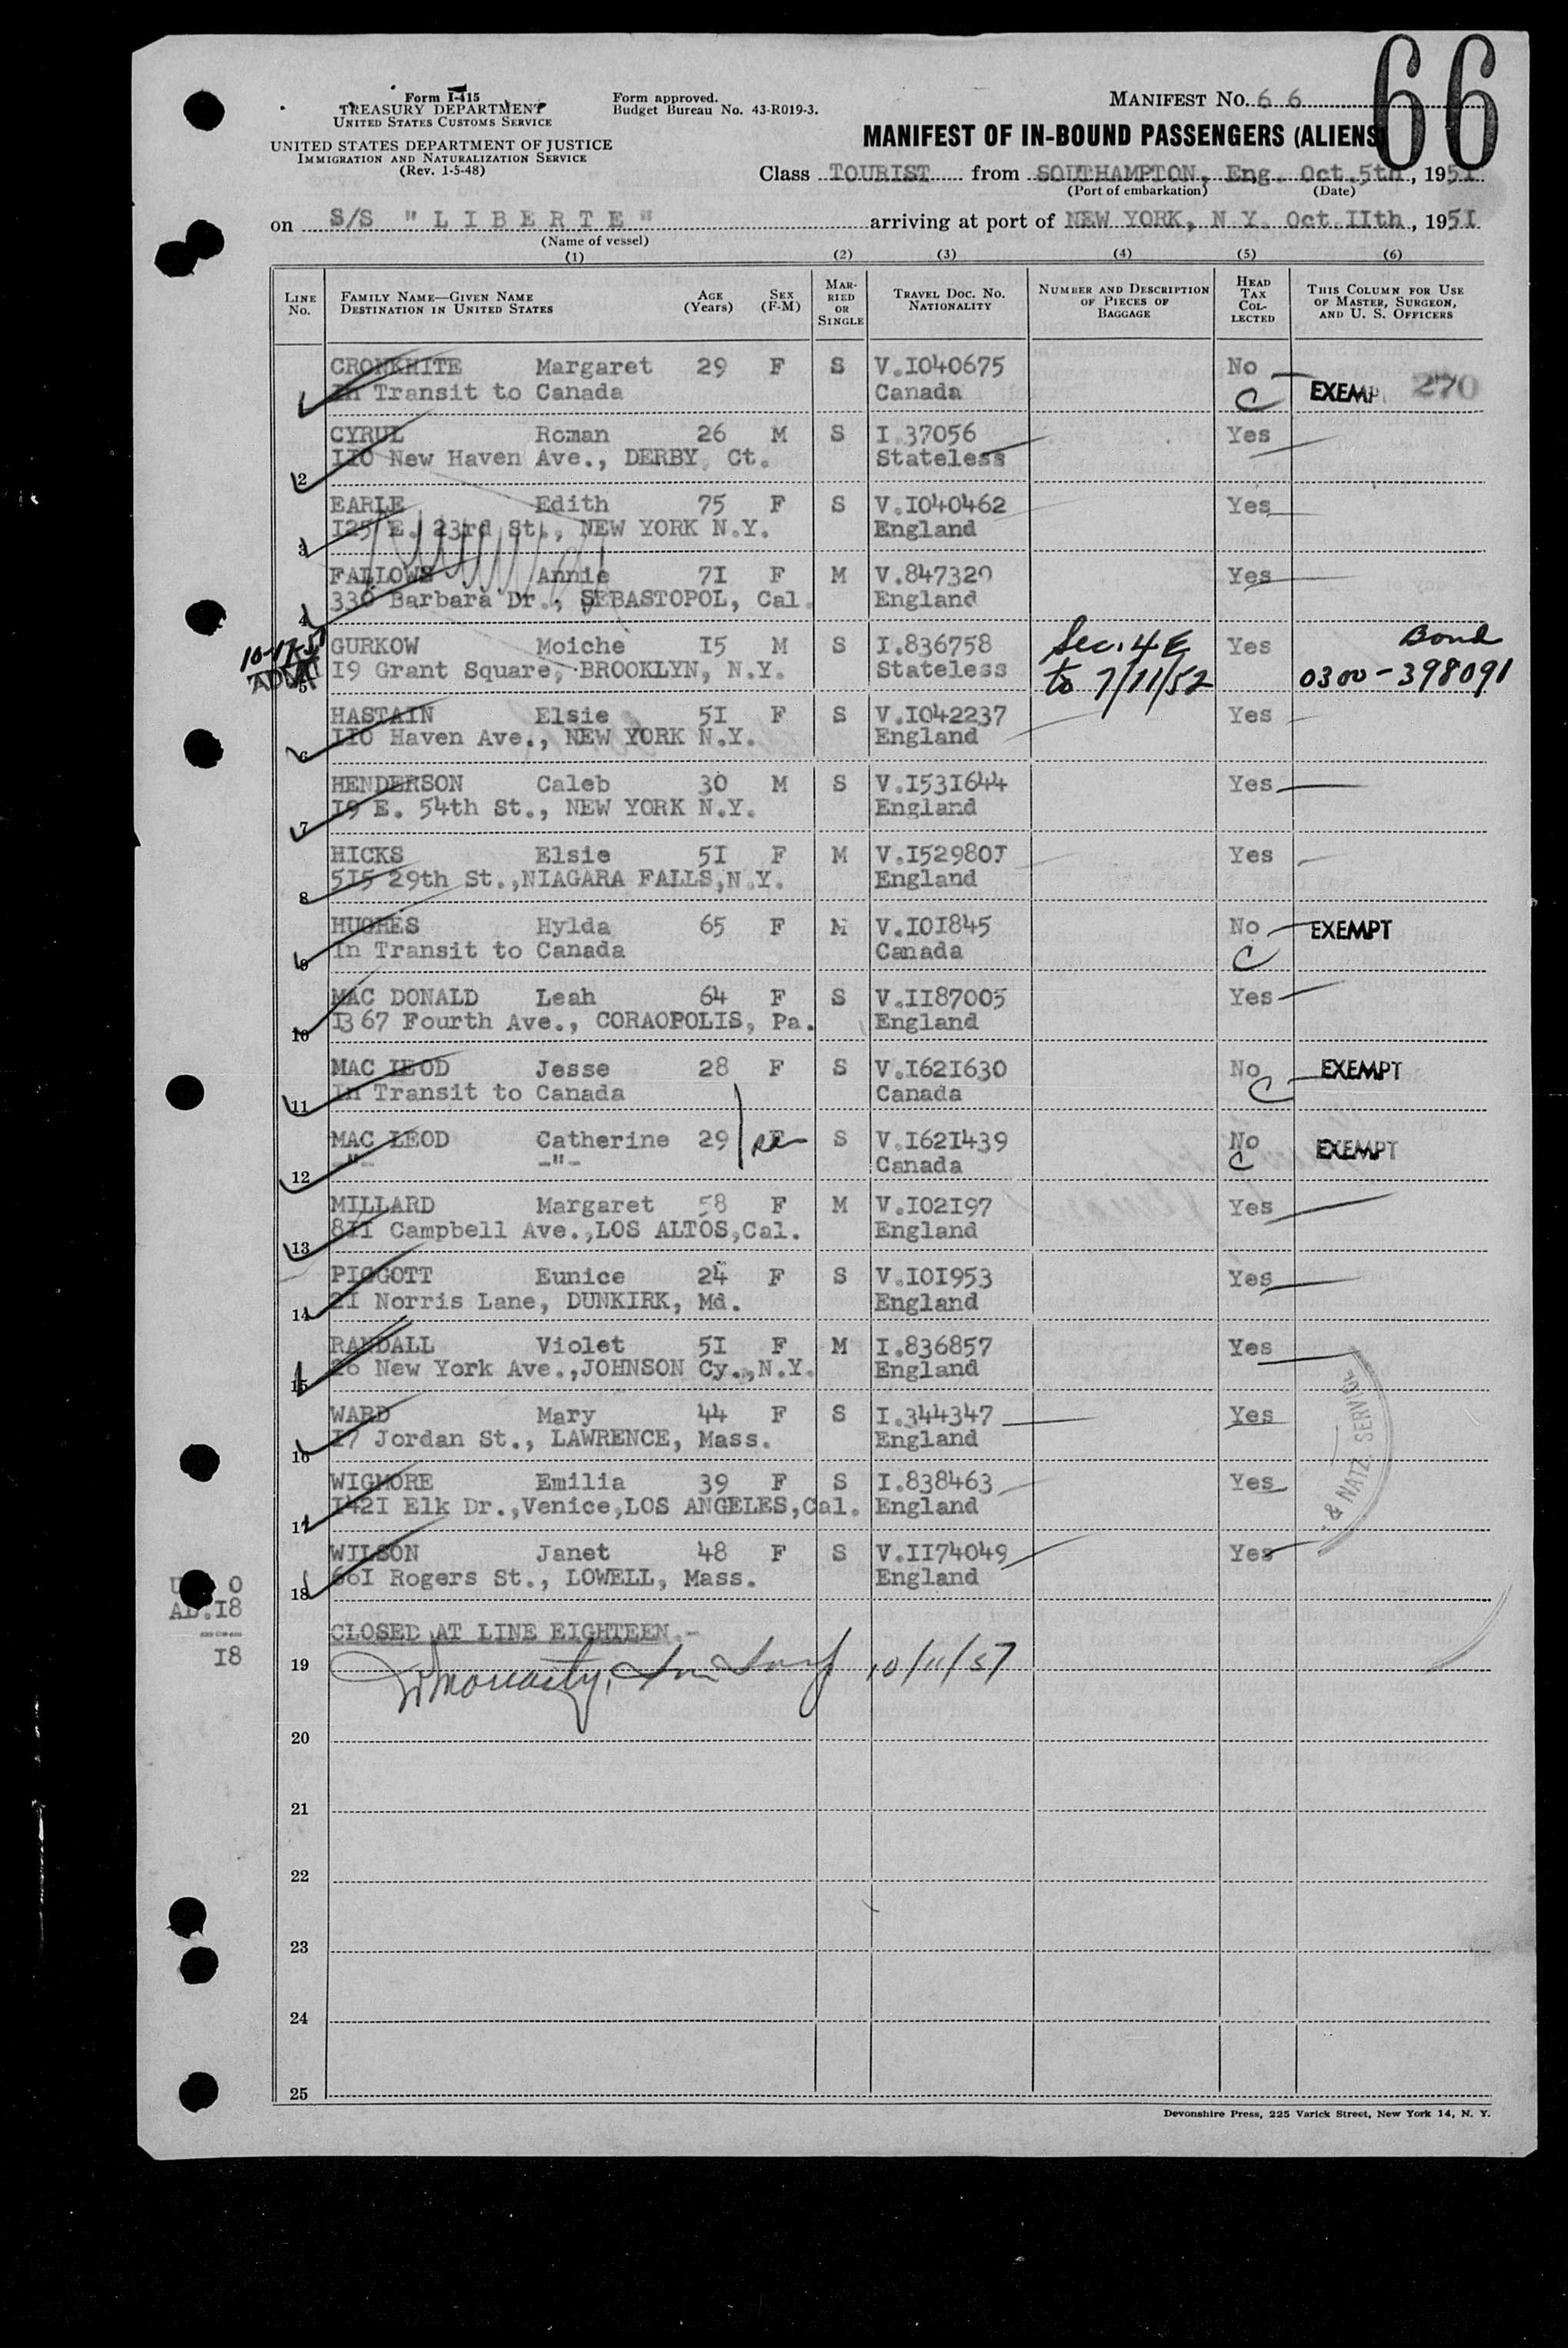 66
Form I-415
TREASURY DEPARTMENT
UNITED STATES CUSTOMS SERVICE
UNITED STATES DEPARTMENT OF JUSTICE
IMMIGRATION AND NATURALIZATION SERVICE
(Rev. 1-5-48)
Form approved.
Budget Bureau No. 43-R019-3.
MANIFEST No. 6 6
MANIFEST OF IN-BOUND PASSENGERS (ALIENS
Class TOURIST from SOUTHAMPTON, Eng. Oct.5th, 1951
(Port of embarkation) (Date)
on S/S " L I B E R T E " arriving at port of NEW YORK, N Y. Oct.IIth, 1951
(Name of vessel)
(1) (2) (3) (4) (5) (6)
LINE No. FAMILY NAME—GIVEN NAME DESTINATION IN UNITED STATES AGE (Years) SEX (F-M) MARRIED OR SINGLE TRAVEL DOC. NO. NATIONALITY NUMBER AND DESCRIPTION OF PIECES OF BAGGAGE HEAD TAX COLLECTED THIS COLUMN FOR USE OF MASTER, SURGEON, AND U. S. OFFICERS
CRONKHITE Margaret 29 F S V.I040675 No
In Transit to Canada Canada C EXEMP 270
CYRUL Roman 26 M S I 37056 Yes
2 II0 New Haven Ave., DERBY, Ct. Stateless
EARLE Edith 75 F S V.I040462 Yes
3 I25 E. 23rd St., NEW YORK N.Y. England
FALLOWS Annie 7I F M V.847320 Yes
4 330 Barbara Dr., SEBASTOPOL, Cal. England
10-17-51 GURKOW Moiche I5 M S I.836758 Sec. 4 E Yes Bond
5 I9 Grant Square, BROOKLYN, N.Y. Stateless to 7/11/52 0300-398091
HASTAIN Elsie 5I F S V.I042237 Yes
6 II0 Haven Ave., NEW YORK N.Y. England
HENDERSON Caleb 30 M S V.I53I644 Yes
7 I9 E. 54th St., NEW YORK N.Y. England
HICKS Elsie 5I F M V.I52980I Yes
8 5I5 29th St.,NIAGARA FALLS,N.Y. England
HUGHES Hylda 65 F M V.I0I845 No EXEMPT
9 In Transit to Canada Canada C
MAC DONALD Leah 64 F S V.II87005 Yes
10 I367 Fourth Ave., CORAOPOLIS, Pa. England
MAC LEOD Jesse 28 F S V.I62I630 No EXEMPT
11 In Transit to Canada Canada C
MAC LEOD Catherine 29 F S V.I62I439 No EXEMPT
12 -"- -"- Canada C
MILLARD Margaret 58 F M V.I02I97 Yes
13 8II Campbell Ave.,LOS ALTOS,Cal. England
PIGGOTT Eunice 24 F S V.I0I953 Yes
14 2I Norris Lane, DUNKIRK, Md. England
RANDALL Violet 5I F M I.836857 Yes
15 26 New York Ave.,JOHNSON Cy.,N.Y. England
WARD Mary 44 F S I.344347 Yes
16 I7 Jordan St., LAWRENCE, Mass. England
WIGMORE Emilia 39 F S I.838463 Yes
17 I42I Elk Dr.,Venice,LOS ANGELES,Cal. England
WILSON Janet 48 F S V.II74049 Yes
18 66I Rogers St., LOWELL, Mass. England
& NATZ. SERVICE
0
AL.I8
I8
CLOSED AT LINE EIGHTEEN.-
19 10/11/51
20
21
22
23
24
25
Devonshire Press, 225 Varick Street, New York 14, N. Y.